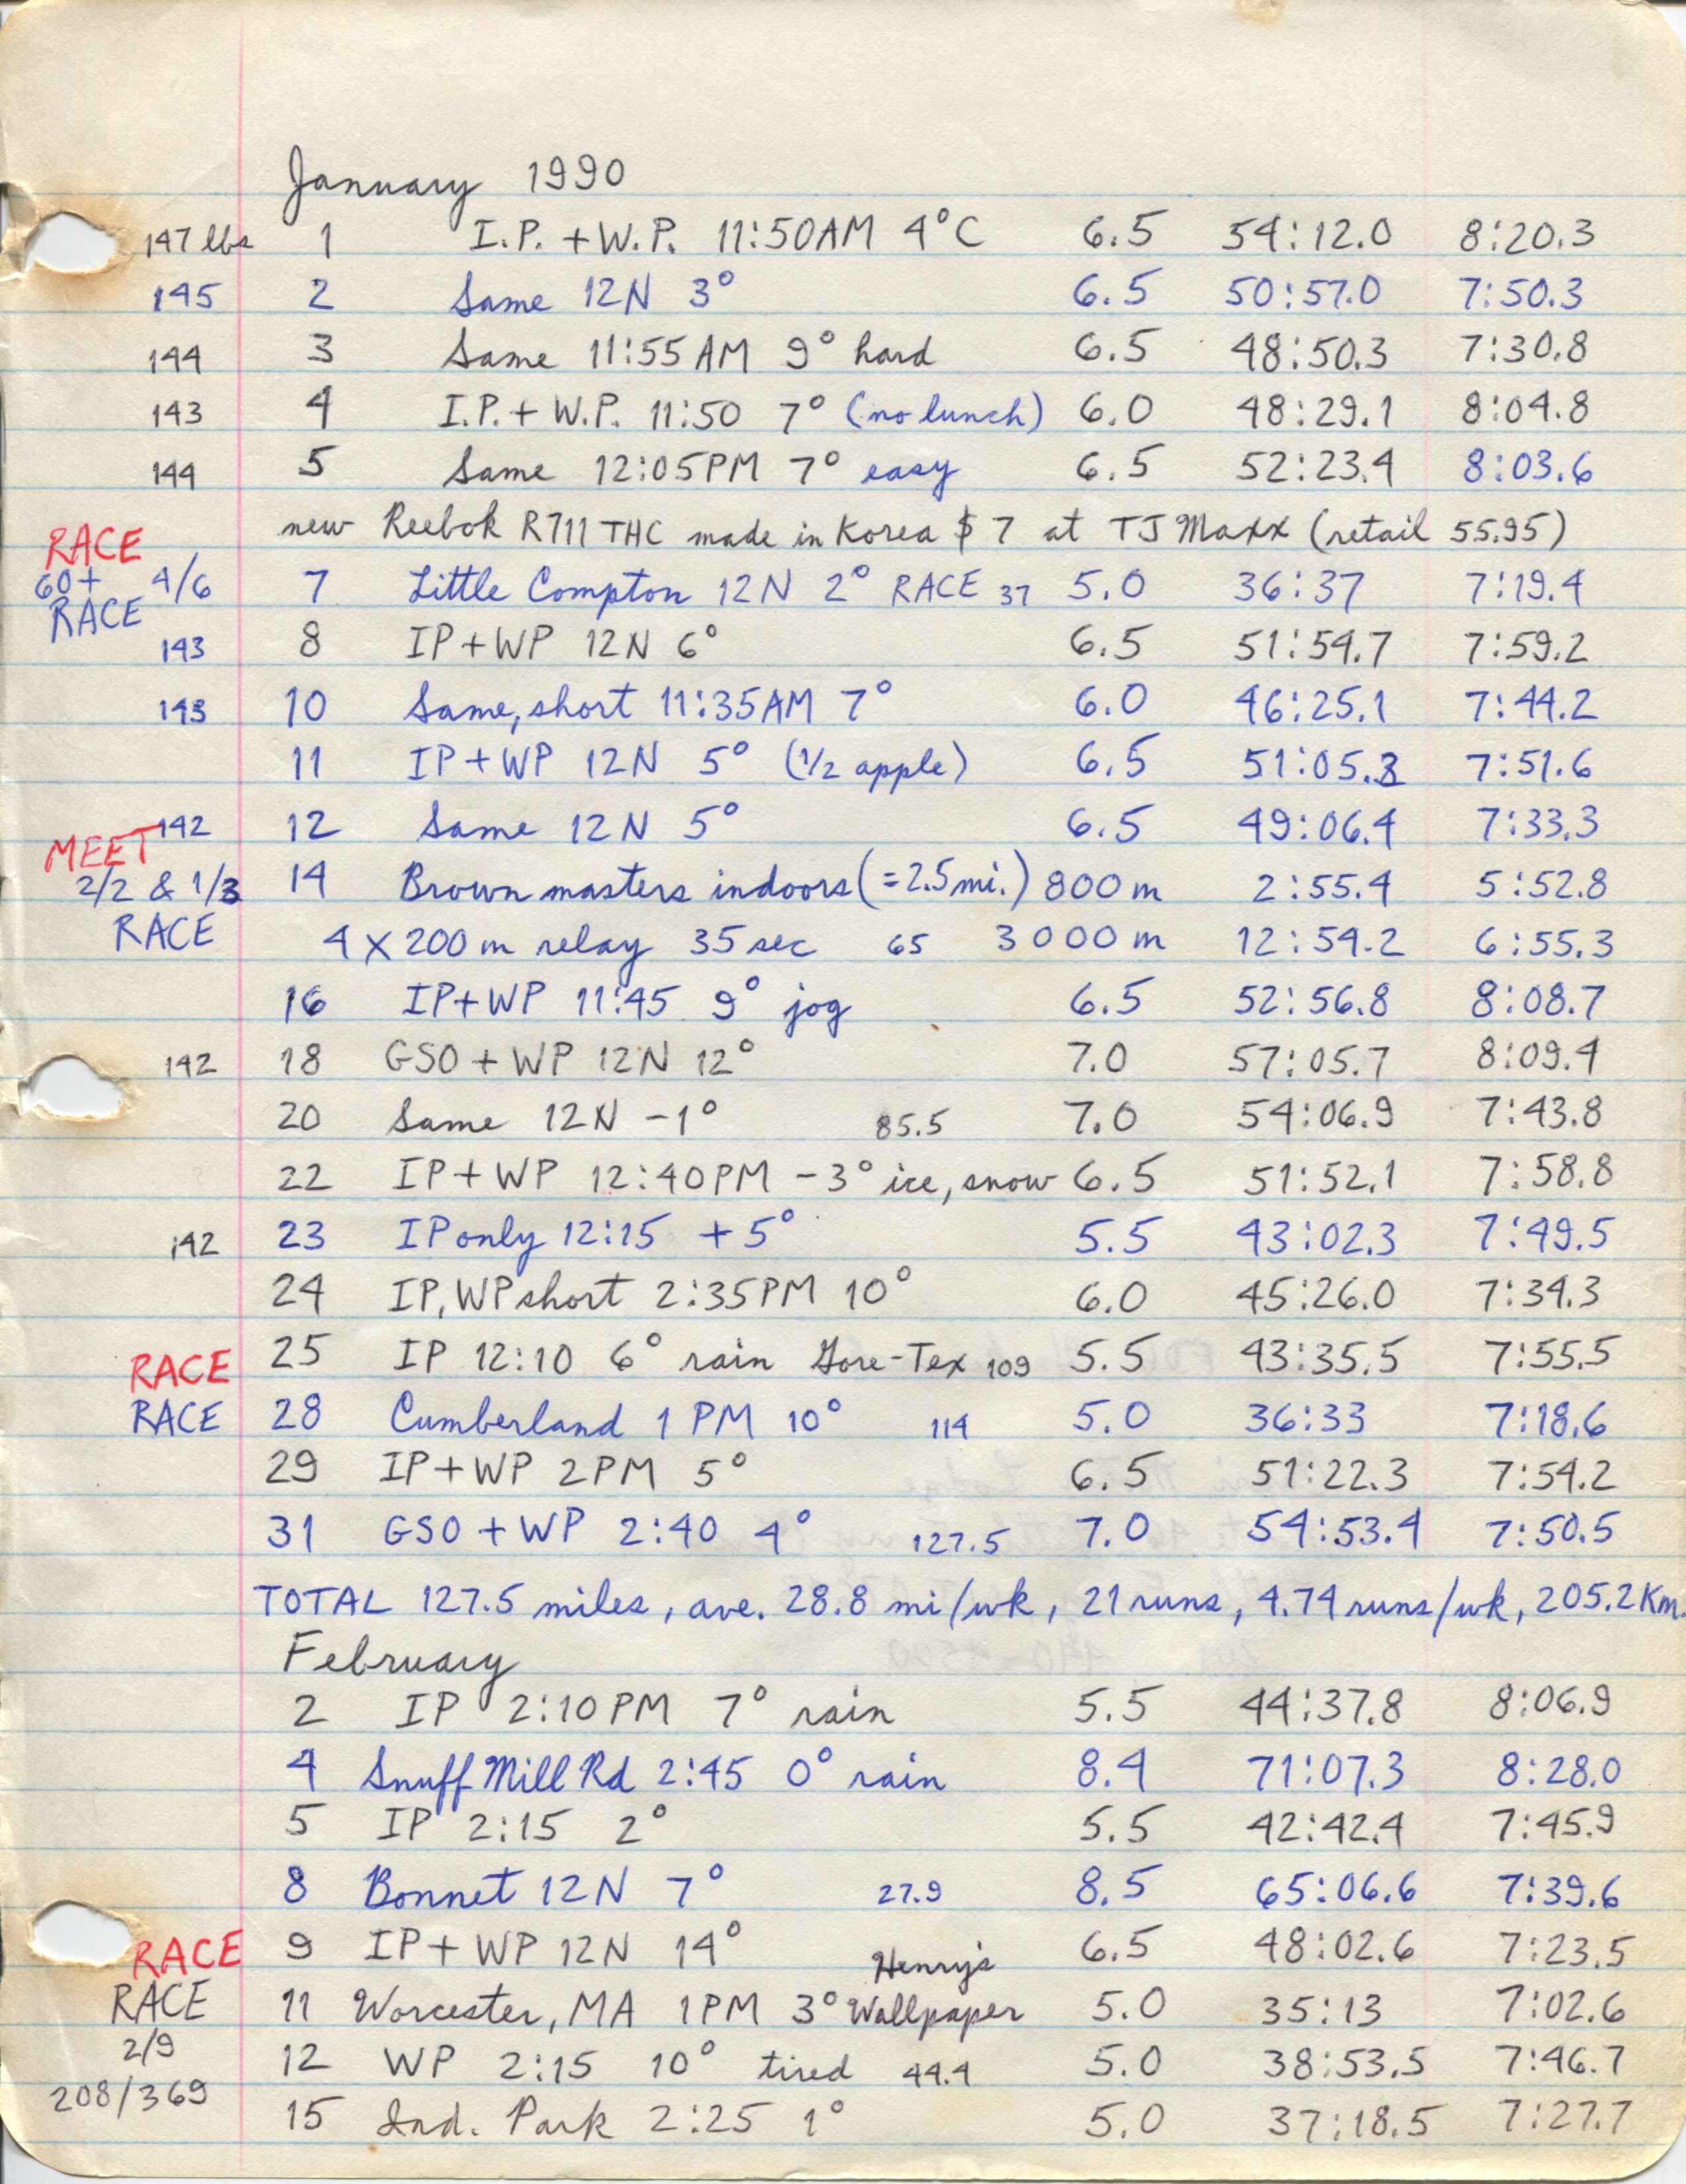 January 1990
147 lbs 1 I.P. + W.P. 11:50AM 4°C 6.5 54:12.0 8:20.3
145 2 Same 12N 3° 6.5 50:57.0 7:50.3
144 3 Same 11:55AM 9° hard 6.5 48:50.3 7:30.8
143 4 I.P. + W.P. 11:50 7° (no lunch) 6.0 48:29.1 8:04.8
144 5 Same 12:05PM 7° easy 6.5 52:23.4 8:03.6
new Reebok R711 THC made in Korea $7 at TJ Maxx (retail 55.95)
RACE
60+ 4/6 7 Little Compton 12N 2° RACE 37 5.0 36:37 7:19.4
RACE
143 8 IP+WP 12N 6° 6.5 51:54.7 7:59.2
143 10 Same, short 11:35AM 7° 6.0 46:25.1 7:44.2
11 IP+WP 12N 5° (1/2 apple) 6.5 51:05.3 7:51.6
142 12 Same 12N 5° 6.5 49:06.4 7:33.3
MEET
2/2 & 1/3 14 Brown masters indoors (=2.5mi.) 800m 2:55.4 5:52.8
RACE 4 X 200m relay 35 sec 65 3000m 12:54.2 6:55.3
16 IP+WP 11:45 9° jog 6.5 52:56.8 8:08.7
142 18 GSO + WP 12N 12° 7.0 57:05.7 8:09.4
20 Same 12N -1° 85.5 7.0 54:06.9 7:43.8
22 IP+WP 12:40PM -3° ice, snow 6.5 51:52.1 7:58.8
142 23 IP only 12:15 +5° 5.5 43:02.3 7:49.5
24 IP, WP short 2:35PM 10° 6.0 45:26.0 7:34.3
RACE 25 IP 12:10 6° rain Gore-Tex 109 5.5 43:35.5 7:55.5
RACE 28 Cumberland 1 PM 10° 114 5.0 36:33 7:18.6
29 IP+WP 2PM 5° 6.5 51:22.3 7:54.2
31 GSO + WP 2:40 4° 127.5 7.0 54:53.4 7:50.5
TOTAL 127.5 miles, ave. 28.8 mi/wk, 21 runs, 4.74 runs/wk, 205.2 Km.
February
2 IP 2:10PM 7° rain 5.5 44:37.8 8:06.9
4 Snuff Mill Rd 2:45 0° rain 8.4 71:07.3 8:28.0
5 IP 2:15 2° 5.5 42:42.4 7:45.9
8 Bonnet 12N 7° 27.9 8.5 65:06.6 7:39.6
RACE 9 IP+WP 12N 14° 6.5 48:02.6 7:23.5
RACE 11 Worcester, MA 1PM 3° Henry's Wallpaper 5.0 35:13 7:02.6
2/9
12 WP 2:15 10° tired 44.4 5.0 38:53.5 7:46.7
208/369
15 Ind. Park 2:25 1° 5.0 37:18.5 7:27.7